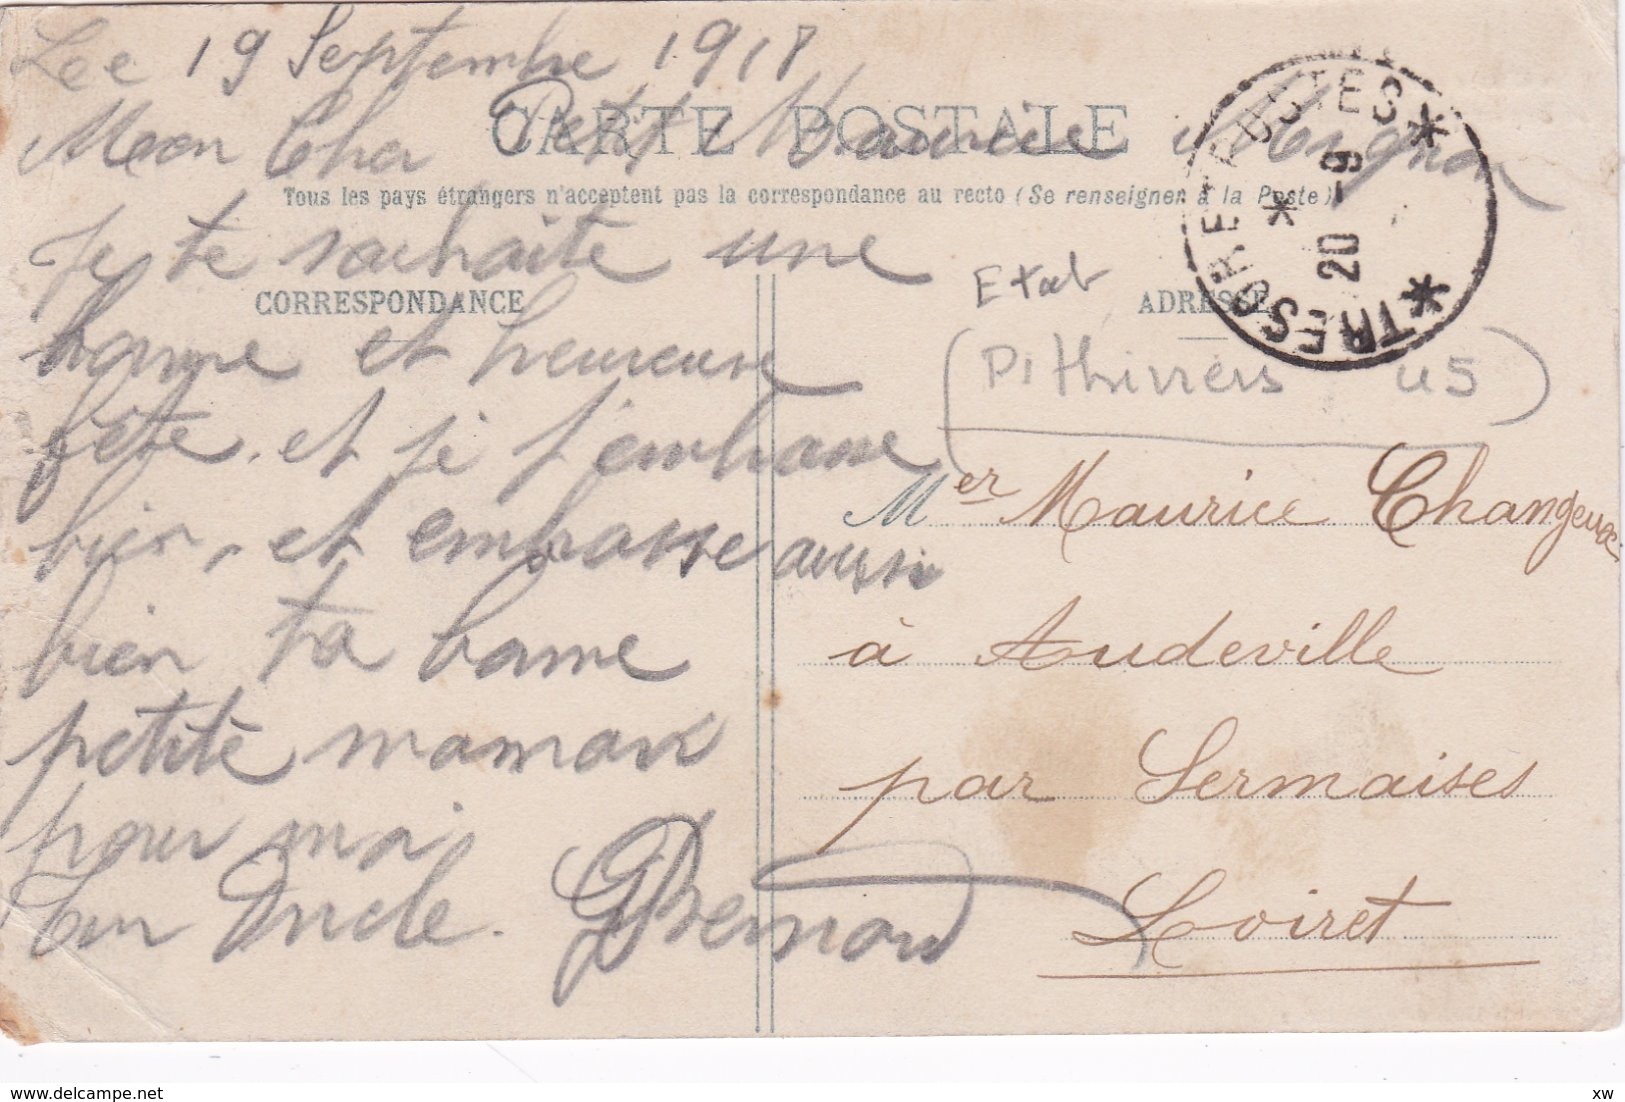 Lee 19 Septembre 1918
CARTE POSTALE
Mon Cher Petit Maurice Mignon
Tous les pays étrangers n'acceptent pas la correspondance au recto (Se renseigner à la Poste)
Je te souhaite une
CORRESPONDANCE
bonne et heureuse
fête. et je t'embrasse
bien, et embrasse aussi
bien ta bonne
petite maman
pour moi
Ton Oncle. GBernard
*TRESOR ET POSTES*
* 20 -9
Etab
ADRESSE
(Pithiviers 45)
Mer Maurice Changeux
à Audeville
par Sermaises
Loiret
www.delcampe.net
xw